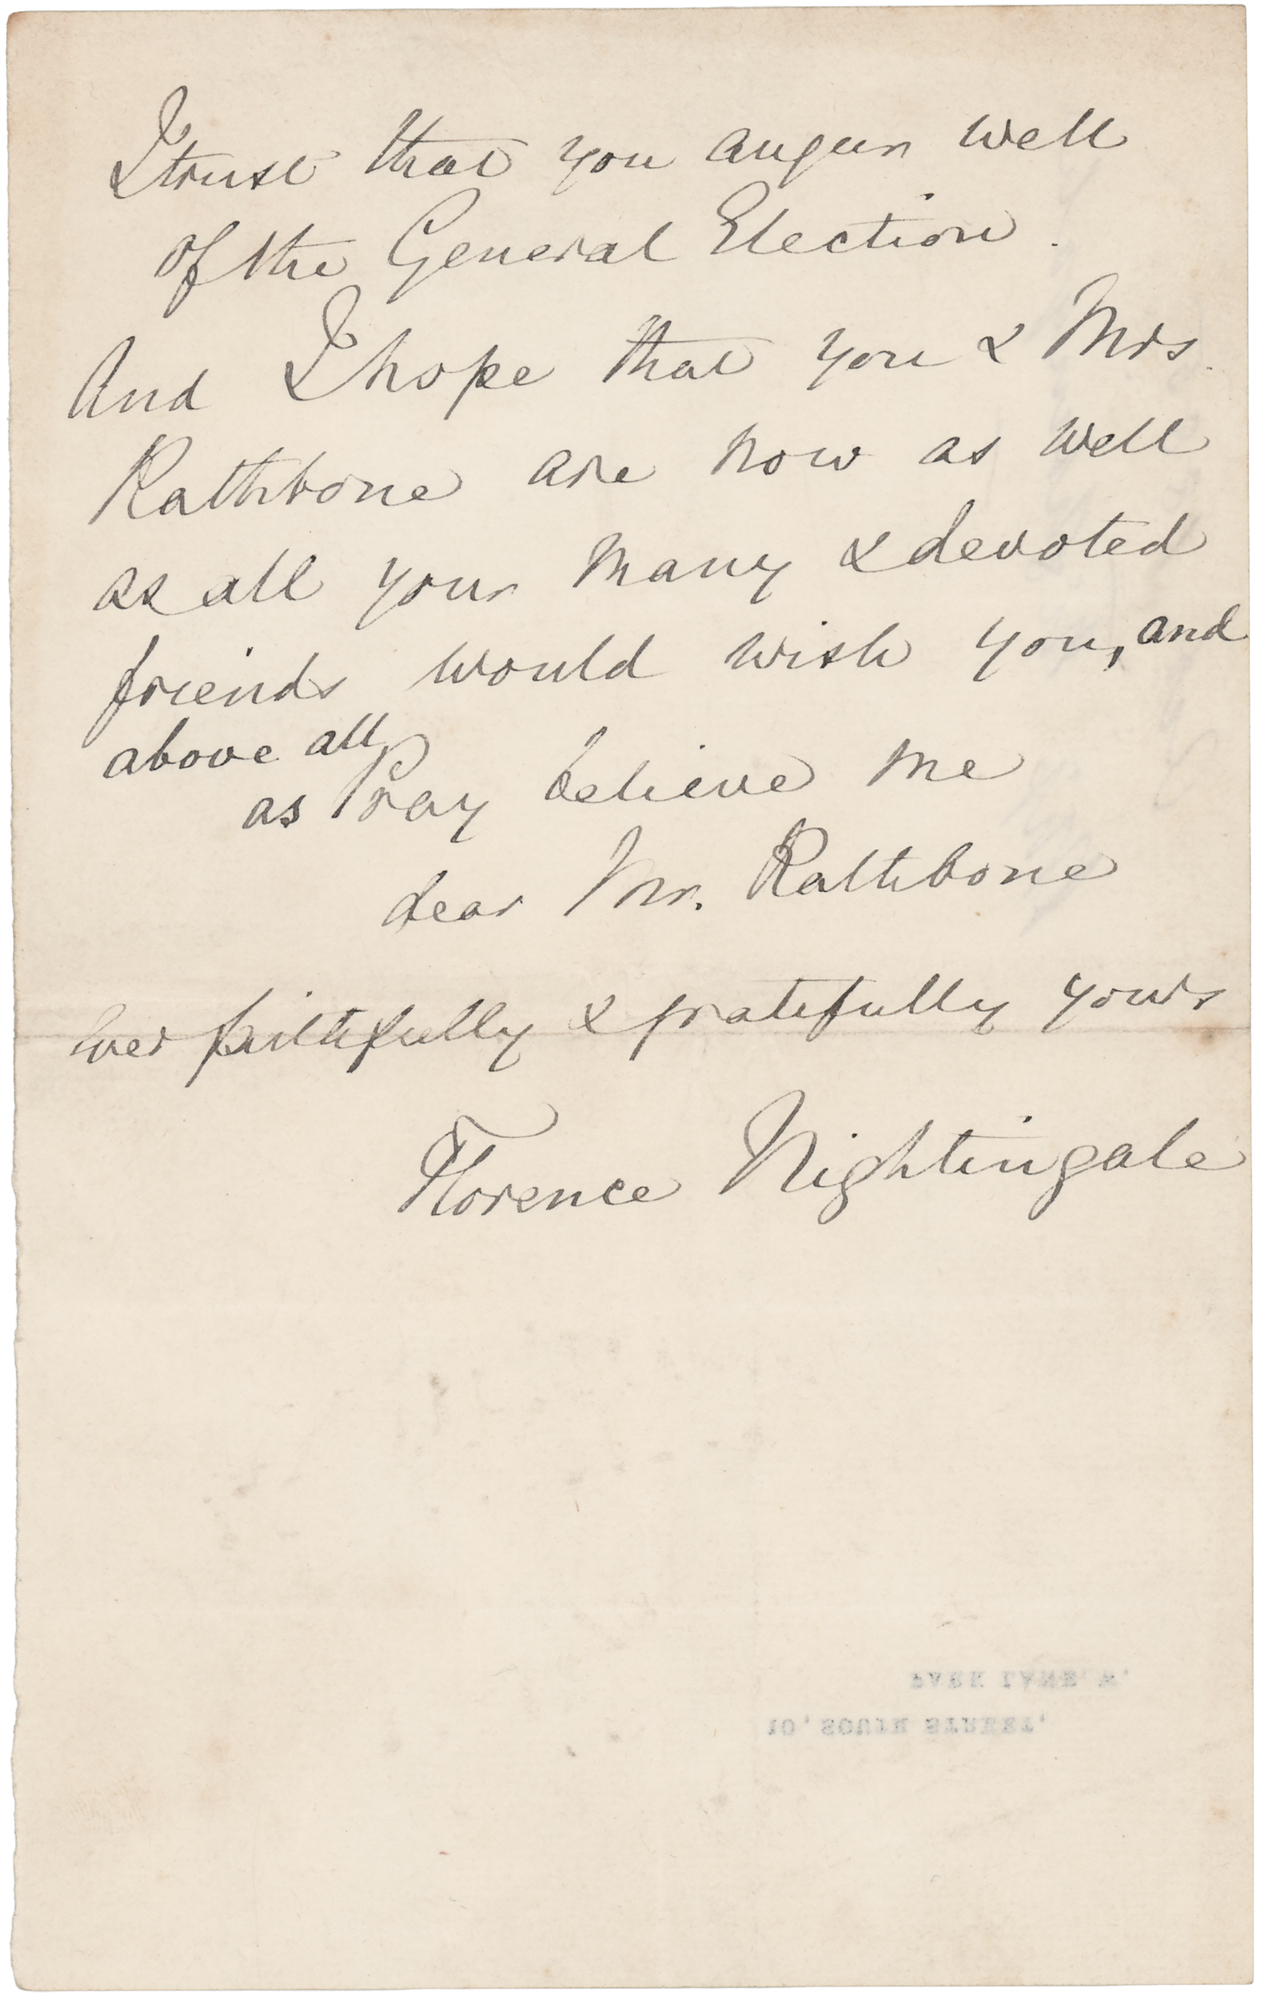 I trust that you augur well
of the General Election.
And I hope that you & Mrs.
Rathbone are now as well
as all your many & devoted
friends would wish you, and
above all
as Pray believe me
dear Mr. Rathbone
ever faithfully & gratefully yours
Florence Nightingale
10, SOUTH STREET,
PARK LANE. W.